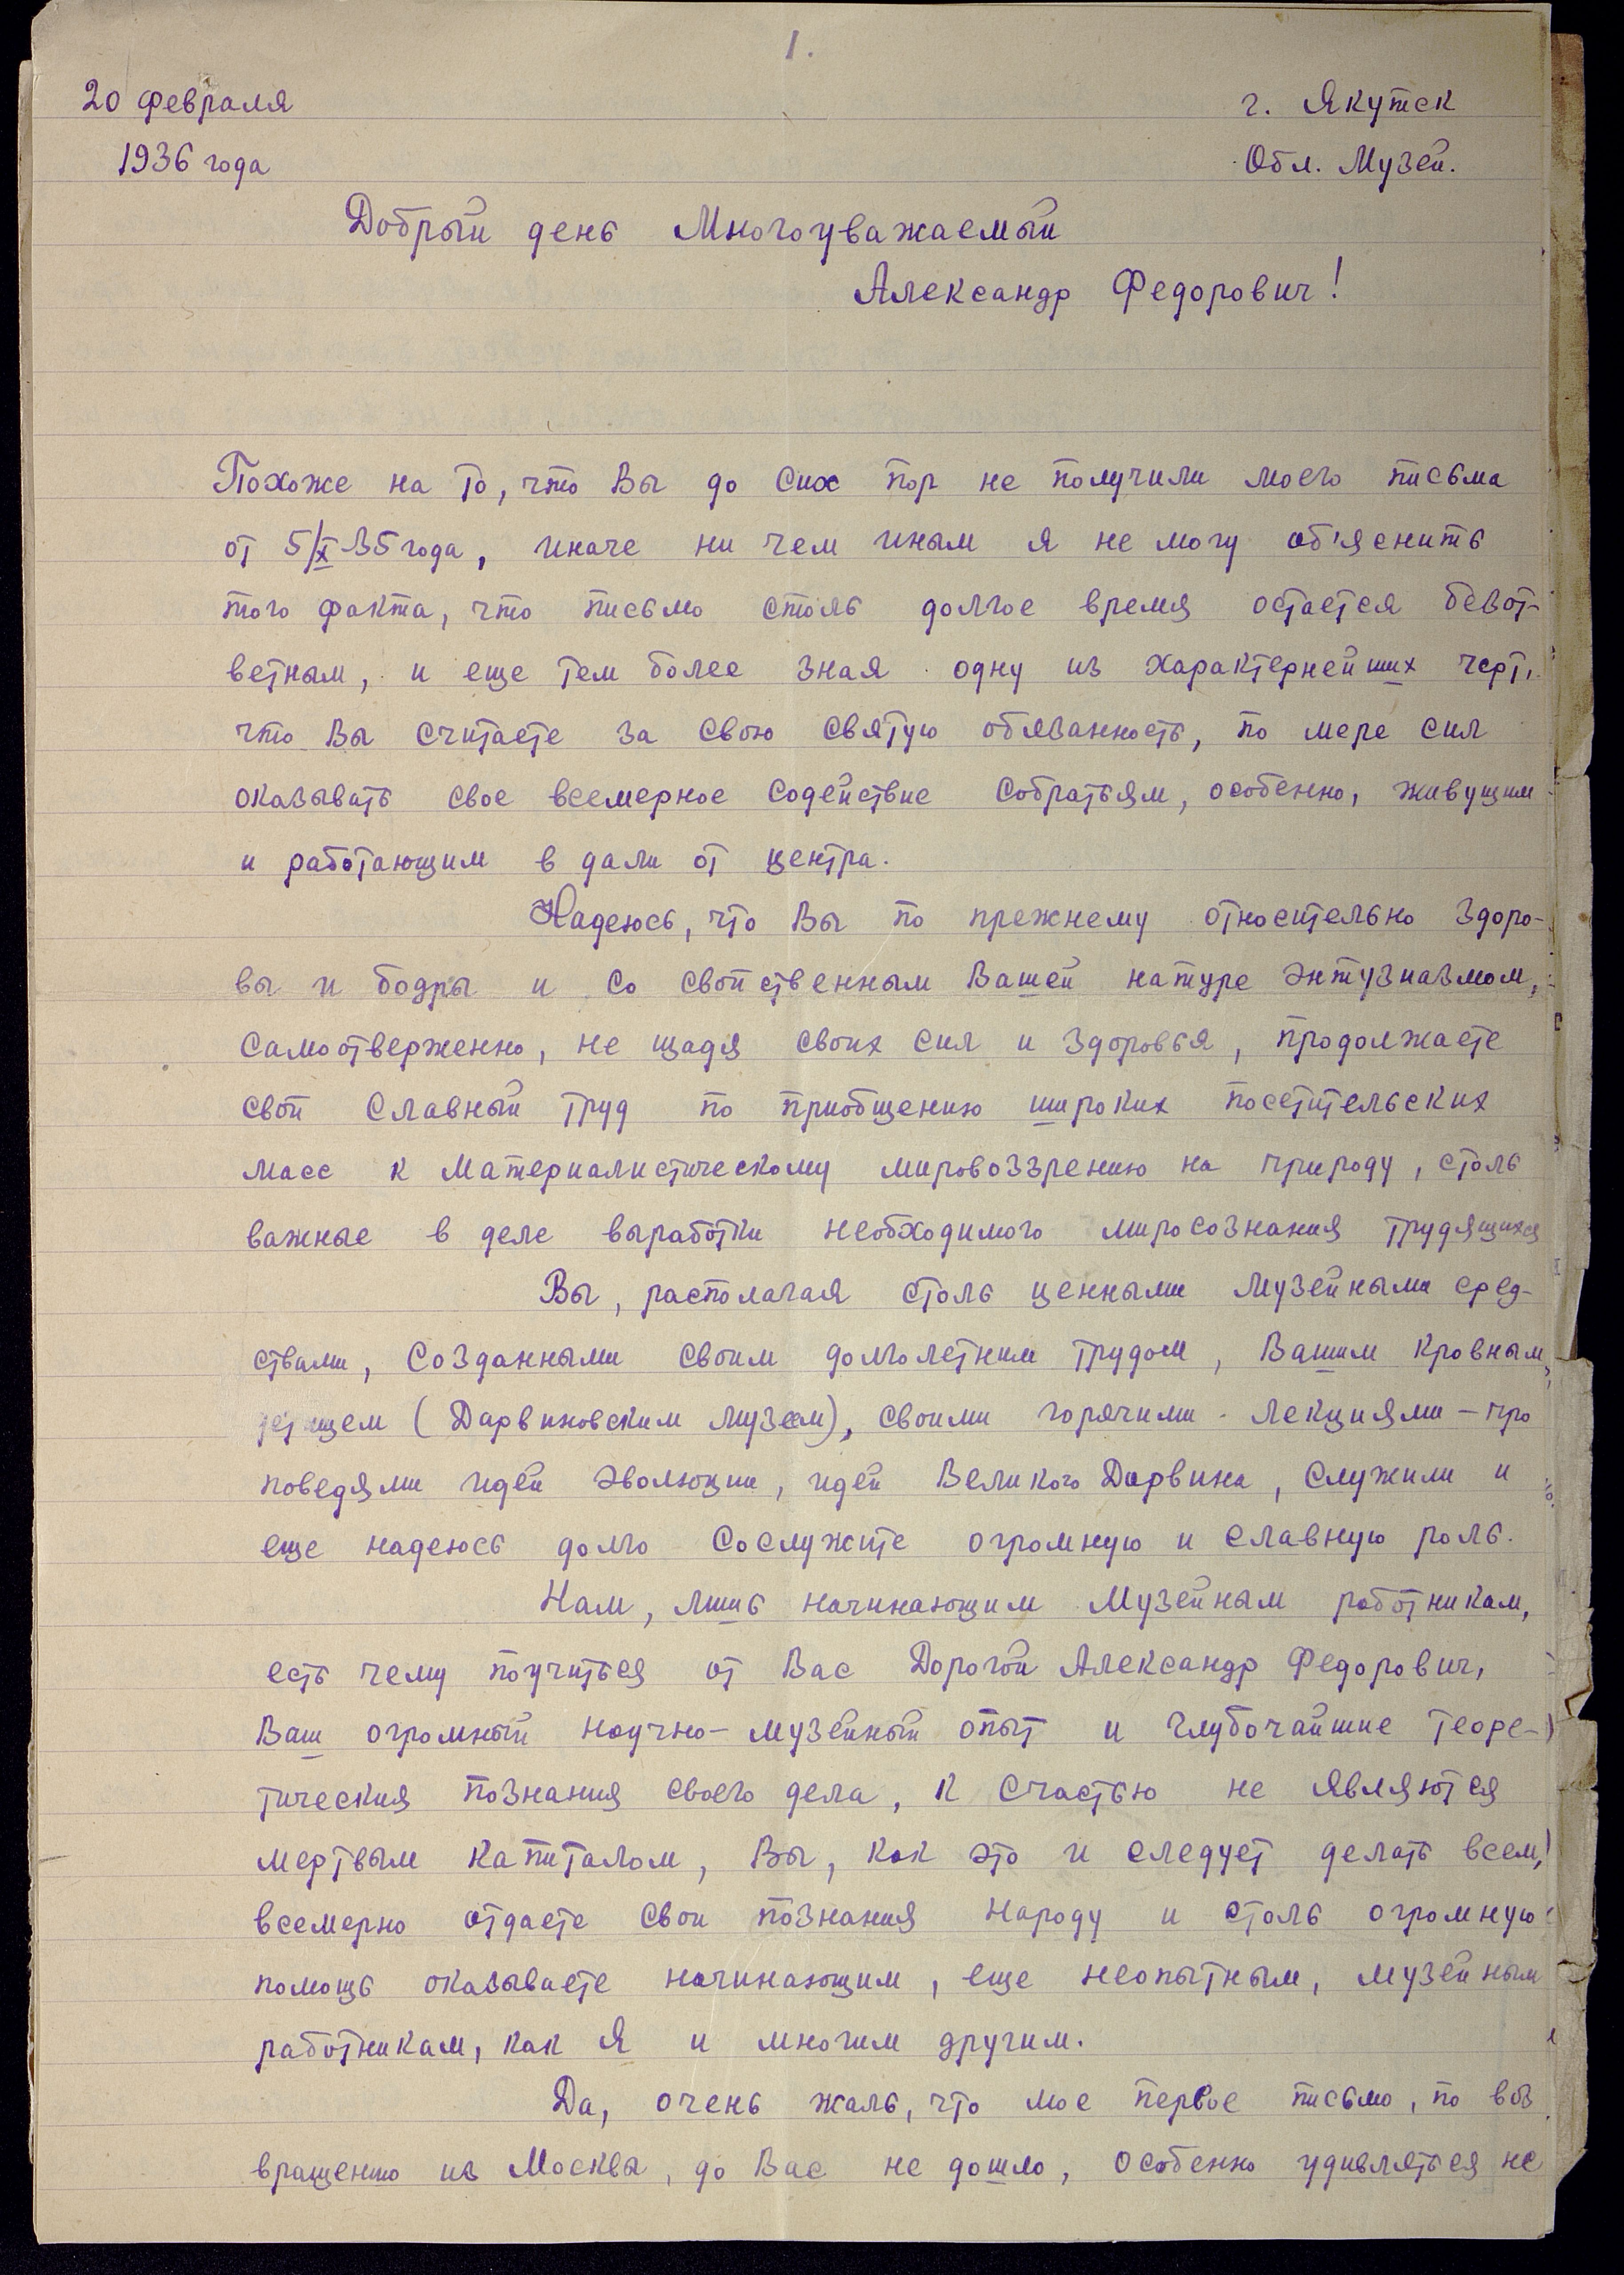 1.
20 февраля г. Якутск
1936 года Обл. Музей.
Добрый день Многоуважаемый
Александр Федорович!
Похоже на то, что Вы до сих пор не получили моего письма
от 5/X-35 года, иначе ни чем иным я не могу об'яснить
того факта, что письмо столь долгое время остается безот-
ветным, и еще тем более зная одну из характернейших черт,
что Вы считаете за свою святую обязанность, по мере сил
оказывать свое всемерное содействие собратьям, особенно, живущим
и работающим в дали от центра.
Надеюсь, что Вы по прежнему относительно здоро-
вы и бодры и со свойственным Вашей натуре энтузиазмом,
самоотверженно, не щадя своих сил и здоровья, продолжаете
свой славный труд по приобщению широких посетительских
масс к материалистическому мировоззрению на природу, столь
важные в деле выработки необходимого миросознания трудящихся
Вы, располагая столь ценными музейными сред-
ствами, созданными своим долголетним трудом, Вашим кровным
детищем (Дарвиновским музеем), своими горячими лекциями-про
поведями идей эволюции, идей Великого Дарвина, служили и
еще надеюсь долго сослужите огромную и славную роль.
Нам, лишь начинающим музейным работникам,
есть чему поучиться от Вас Дорогой Александр Федорович,
Ваш огромный научно-музейный опыт и глубочайшие теоре-
тическия познания своего дела, к счастью не являются
мертвым капиталом, Вы, как это и следует делать всем,
всемерно отдаете свои познания народу и столь огромную
помощь оказываете начинающим, еще неопытным, музейным
работникам, как я и многим другим.
Да, очень жаль, что мое первое письмо, по воз
вращению из Москвы, до Вас не дошло, особенно удивляться не